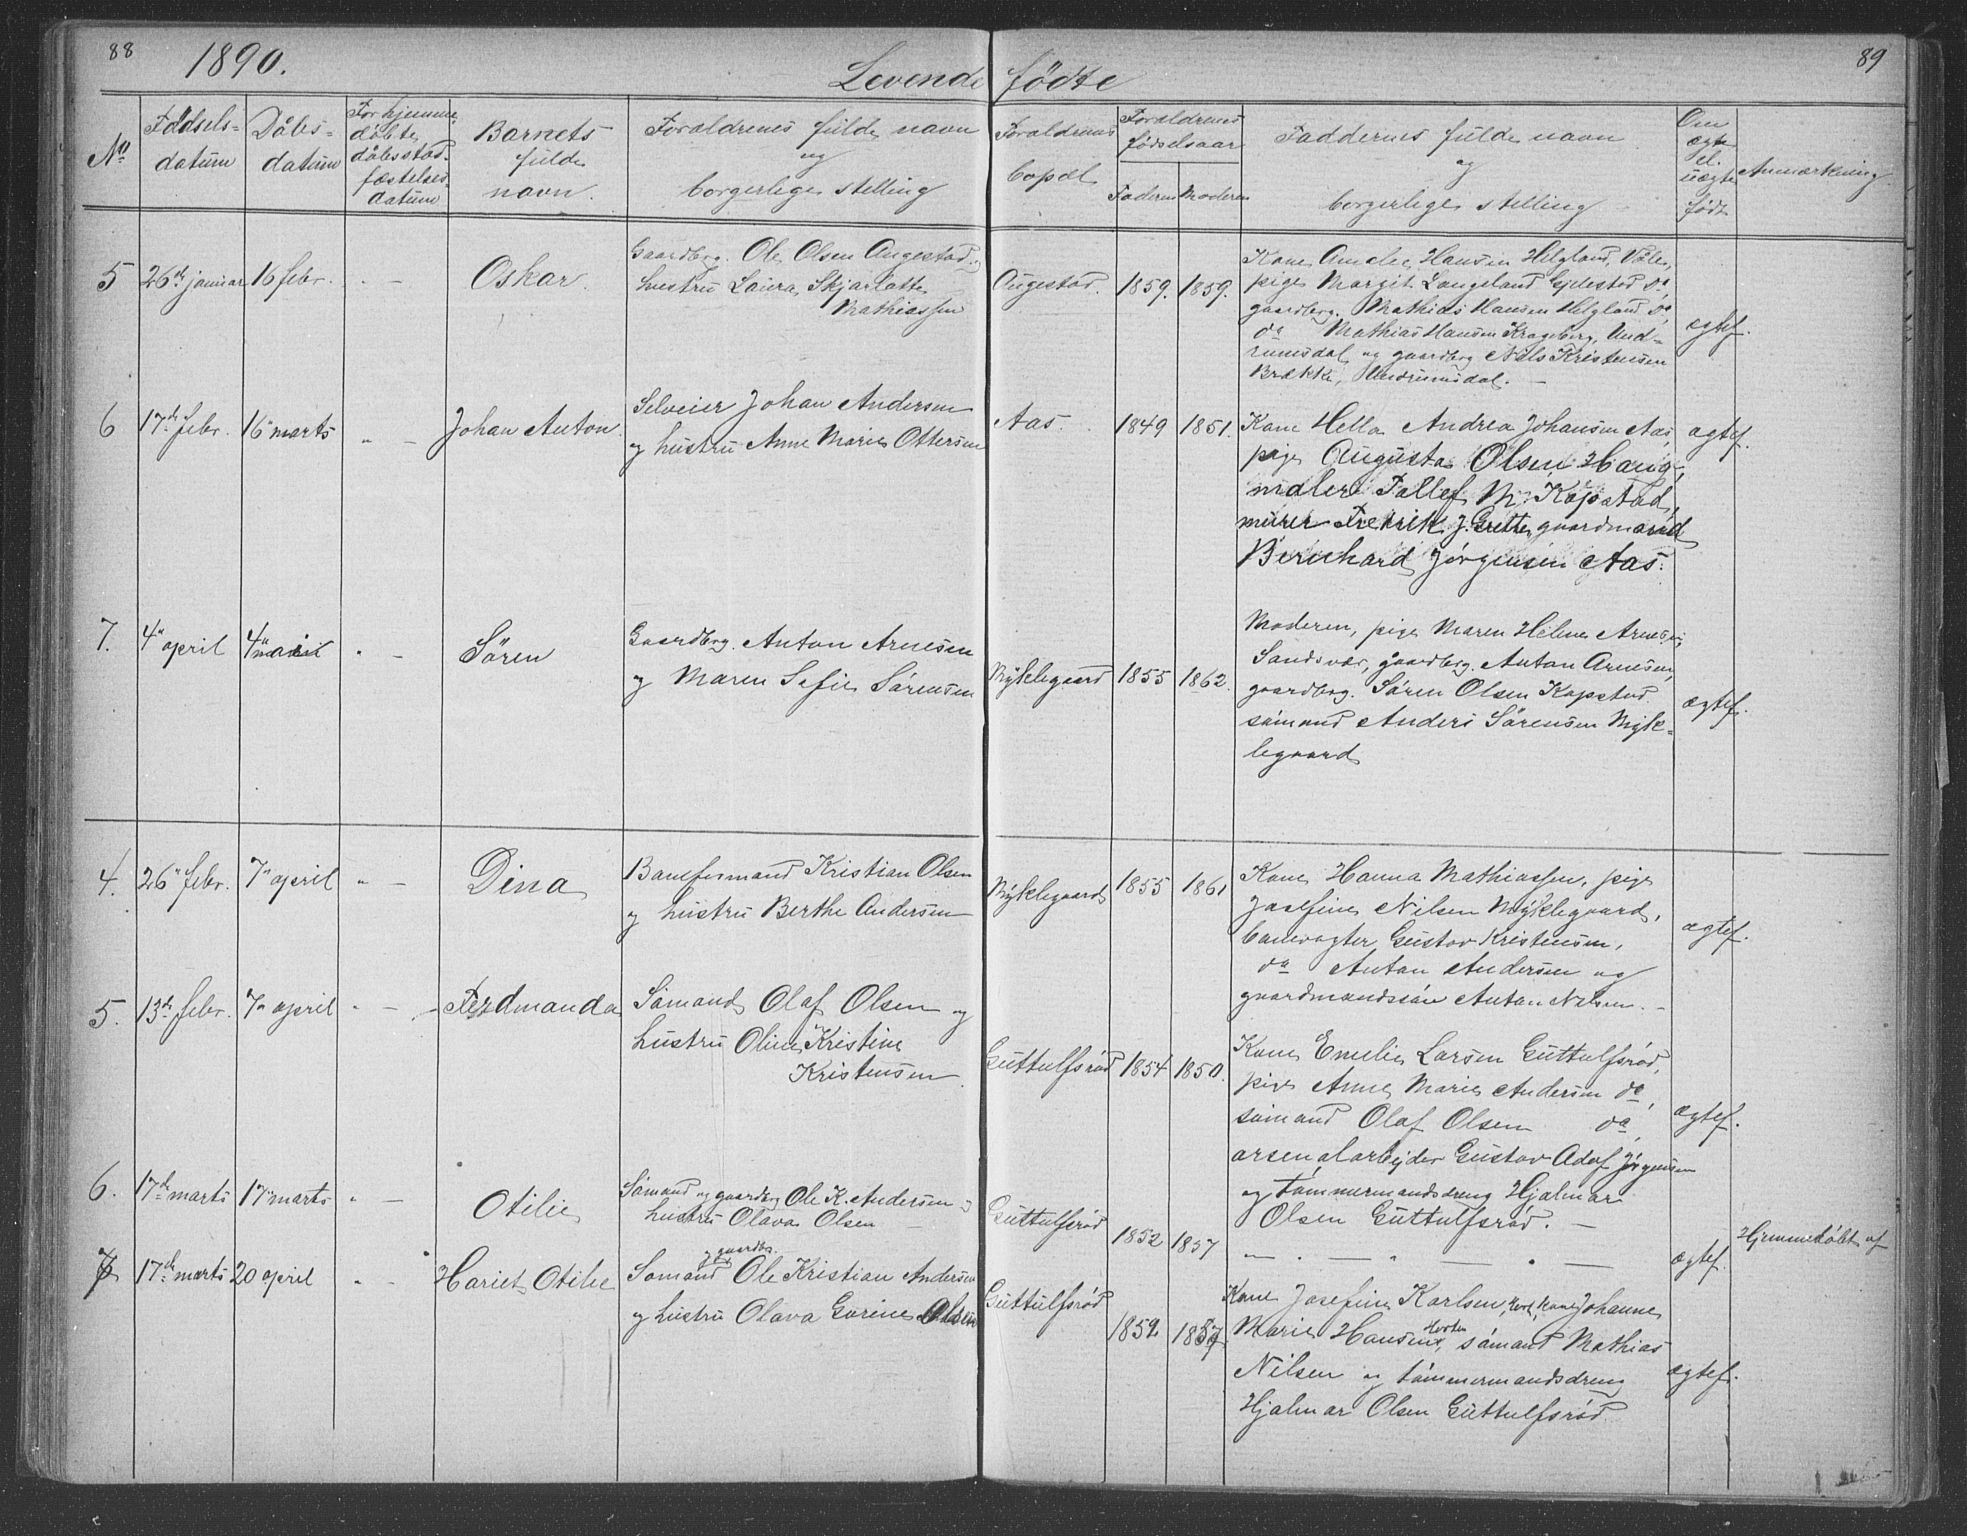 88
1890.
Levende fødte
89
No
Fødsels-
datum
Dåbs-
datum
For hjemme
døbte
dåbsstad.
fæstelses
datum
Barnets
fulde
navn.
Foraldrenes fulde navn
og
borgerlige stelling
Foraldrenes
bopæl
Foraldrenes
fødselsaar
Faderen Moderen
Faddernes fulde navn
og
borgerlige stelling
Om
ægte
el.
uægte
født
Anmærkning
5 26de januar 16 febr. " — Oskar.
Gaardbrg. Ole Olsen Augestad og
hustru Laura Skjarlotte
Mathiassen
Augestad. 1859. 1859.
Kone Amelie Hansen Helgland, Våle,
pige Margit Langeland Gjelestad do,
gaardbrg. Mathias Hansen Helgland do,
do Mathias Hansen Krageberg, Und-
rumsdal og gaardbrg Nils Kristensen
Brække, Undrumsdal. —
ægtef.
6 17de febr. 16 marts " — Johan Anton.
Selveier Johan Andersen
og hustru Anne Marie Ottersen
Aas. 1849 1851.
Kone Hella Andrea Johansen Aas,
pige Augusta Olsen Haug,
maler Tallef M. Kopstad,
murer Fredrik J. Grette, gaardmand
Bernhard Jørgensen Aas.
ægtef.
7. 4" april 4" " — Sören
Gaardbrg. Anton Arnesen
og Maren Sofie Sørensen
Myklegaard 1855 1862.
Moderen, pige Maren Helene Arnesen,
Sandsvær, gaardbrg. Anton Arnesen,
gaardbrg. Sören Olsen Kopstad
sömand Anders Sörensen Myk-
legaard
ægtef.
4. 26" febr. 7" april " — Dina
Baneformand Kristian Olsen
og hustru Berthe Andersen
Myklegaard 1855 1861
Kone Hanna Mathiassen, pige
Josefine Nilsen Myklegaard,
banevogter Gustav Kristensen,
do Anton Andersen og
gaardmandssön Anton Nilsen. —
ægtef.
5. 13de febr. 7" april " — Ferdinanda
Sömand Olaf Olsen og
hustru Oline Kristine
Kristensen
Guttulfsrød 1854 1850.
Kone Emelie Larsen Guttulfsrød,
pige Anne Marie Andersen do,
sömand Olaf Olsen do,
arsenalarbejder Gustav Adof Jörgensen
og tömmermandsdreng Hjalmar
Olsen Guttulfsrød. —
ægtef.
6. 17de marts 17 marts " — Otilie
Sömand og gaardbrg Ole K. Andersen og
hustru Olava Olsen —
Guttulfsrød 1852 1857
— " — " — " —
ægtef.
Hjemmedöbt af
7 17de marts 20 april " — Hariet Otilie
og gaardbr.
Sömand Ole Kristian Andersen
og hustru Olava Gurine Olsen
Guttulfsrød 1852 1857
Kone Josefine Karlsen, kone Johanne
Marie Hansen, Horten sömand Mathias
Nilsen og tömmermandsdreng
Hjalmar Olsen Guttulfsrød.
ægtef.